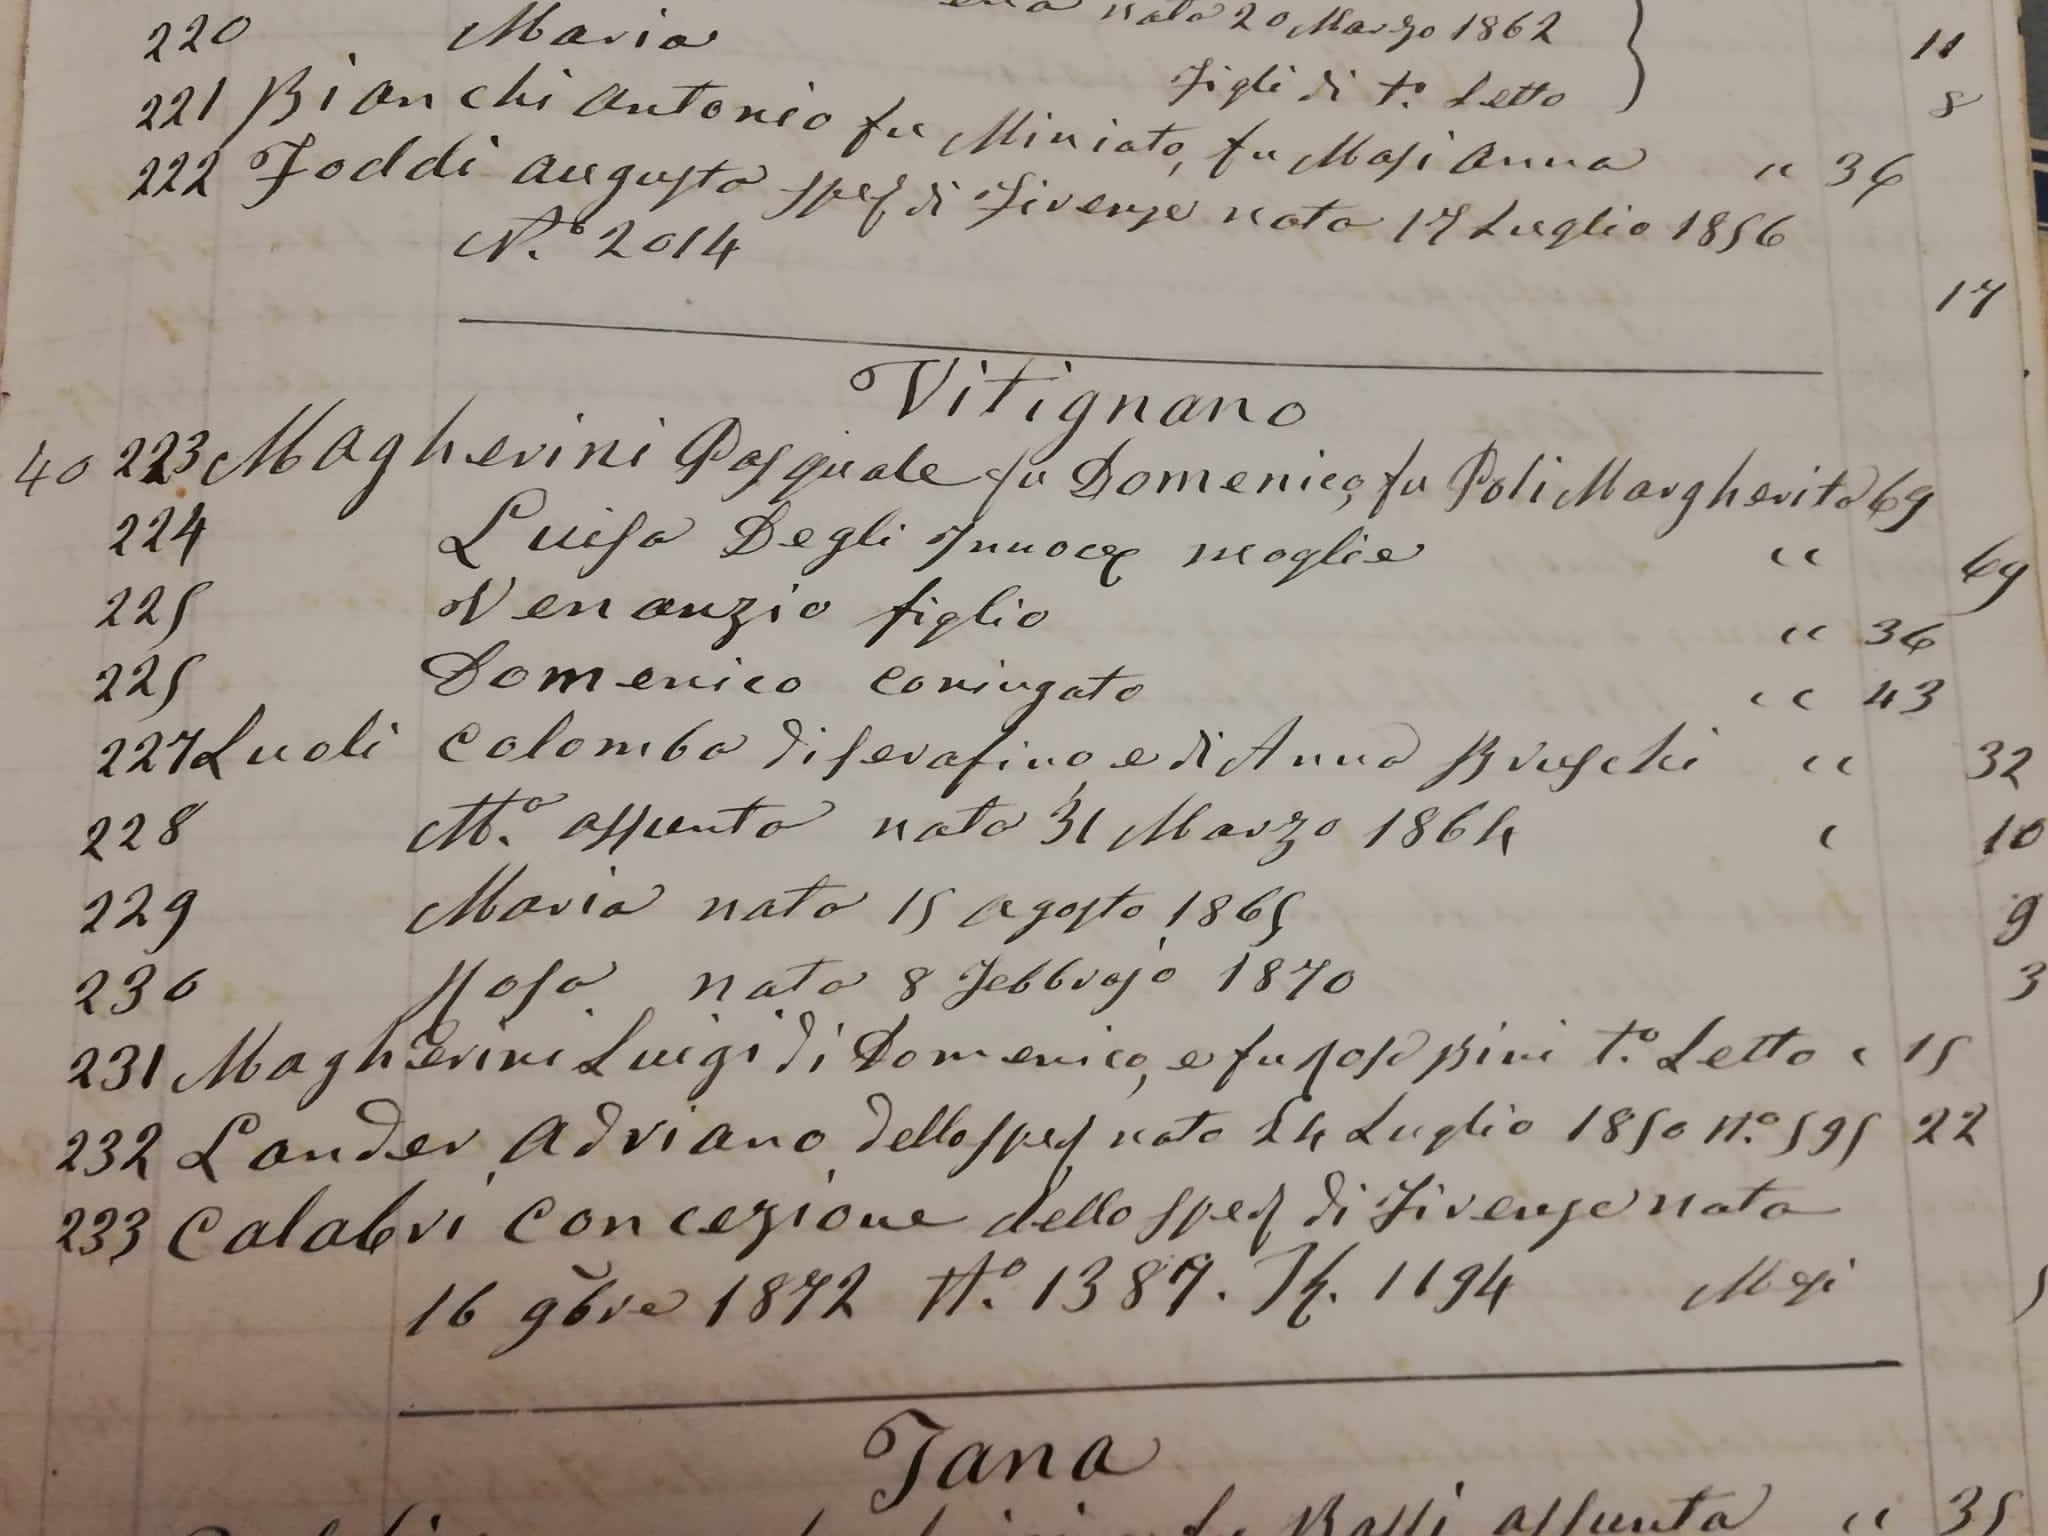 nata 20 Marzo 1862
220 Maria 11
figli di t.o Letto 8
221 Bianchi Antonio fu Miniato, fu Masi Anna " 36
222 Foddi Augusta sped di Firenze nata 17 Luglio 1856
N.o 2014 17
Vitignano
40 223 Magherini Pasquale fu Domenico, fu Poli Margherita 69
224 Luisa Degli Innoc moglie " 69
225 Venanzio figlio " 36
225 Domenico coniugato " 43
227 Luoli Colomba di Serafino, e di Anna Bruschi " 32
228 M.a Assunta nata 31 Marzo 1864 " 10
229 Maria nata 15 Agosto 1865 9
230 Rosa nata 8 Febbrajo 1870 3
231 Magherini Luigi di Domenico, e fu Rosa Bini t.o Letto " 15
232 Lander Adriano dello sped nato 24 Luglio 1850 N.o 595 22
233 Calabri Concezione dello sped di Firenze nata
16 9bre 1872 N.o 1387. 1194 Mesi 5
Tana
Bassi Assunta " 35